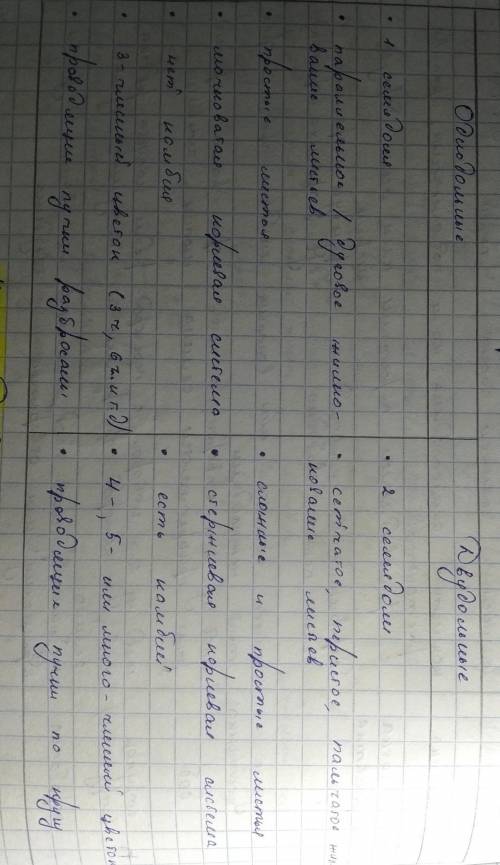 Однодольные
• 1 семядоля
• параллельное / дуговое жилко-
вание листьев
• простые листья
• мочковатая корневая система
• нет камбия
• 3-членный цветок (3ч, 6ч.и тд)
• проводящие пучки разбросаны
Двудольные
• 2 семядоли
• сетчатое, перистое, пальчатое жил
кование листьев
• сложные и простые листья
• стержневая корневая система
• есть камбий
• 4-, 5- или много-членный цветок
• проводящие пучки по кругу